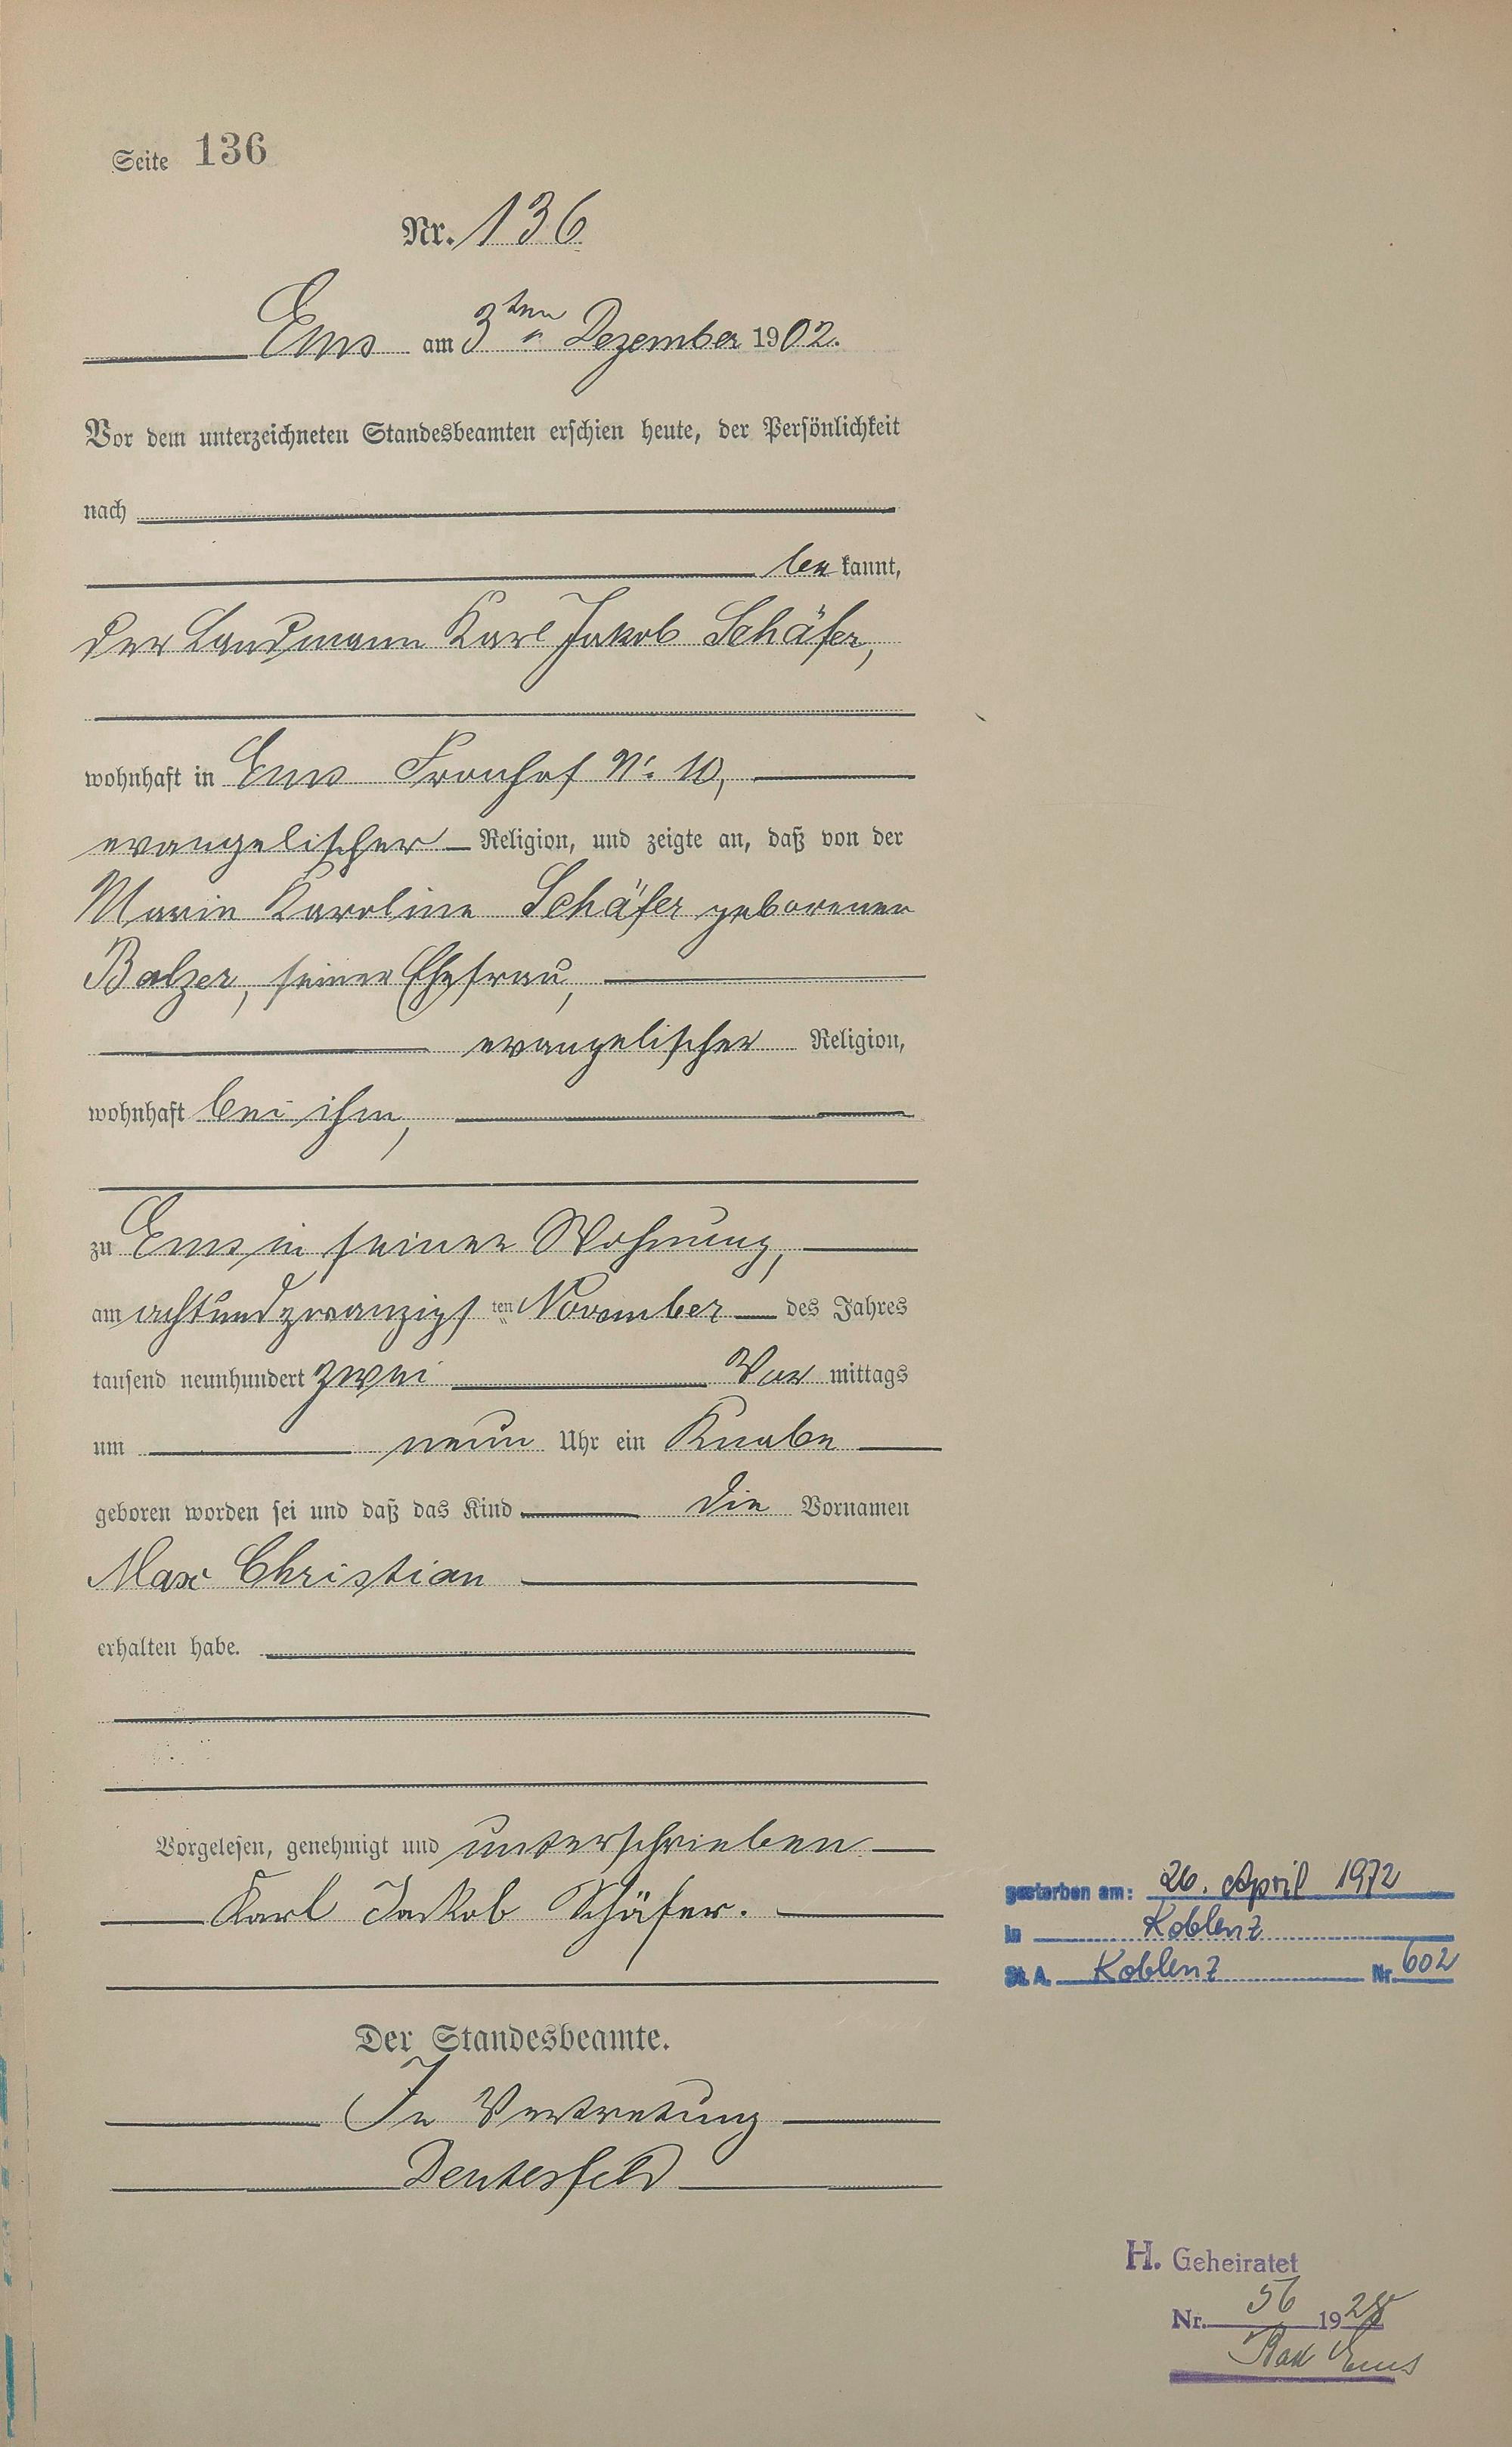 Seite 136
Nr. 136
Ems am 3ten Dezember 1902.
Vor dem unterzeichneten Standesbeamten erschien heute, der Persönlichkeit
nach
be kannt,
der Landmann Karl Jakob Schäfer,
wohnhaft in Ems Fronhof No. 10,
evangelischer Religion, und zeigte an, daß von der
Marie Karoline Schäfer geborenen
Balzer, seiner Ehefrau,
evangelischer Religion,
wohnhaft bei ihm,
zu Ems in seiner Wohnung,
am achtundzwanzigsten November des Jahres
tausend neunhundert zwei Vor mittags
um neun Uhr ein Knabe
geboren worden sei und daß das Kind die Vornamen
Max Christian
erhalten habe.
Vorgelesen, genehmigt und unterschrieben
Karl Jakob Schäfer.
Der Standesbeamte.
In Vertretung
Deutesfeld
gestorben am: 26. April 1972
in Koblenz
St. A. Koblenz Nr. 602
H. Geheiratet
Nr. 56 1928
Bad Ems